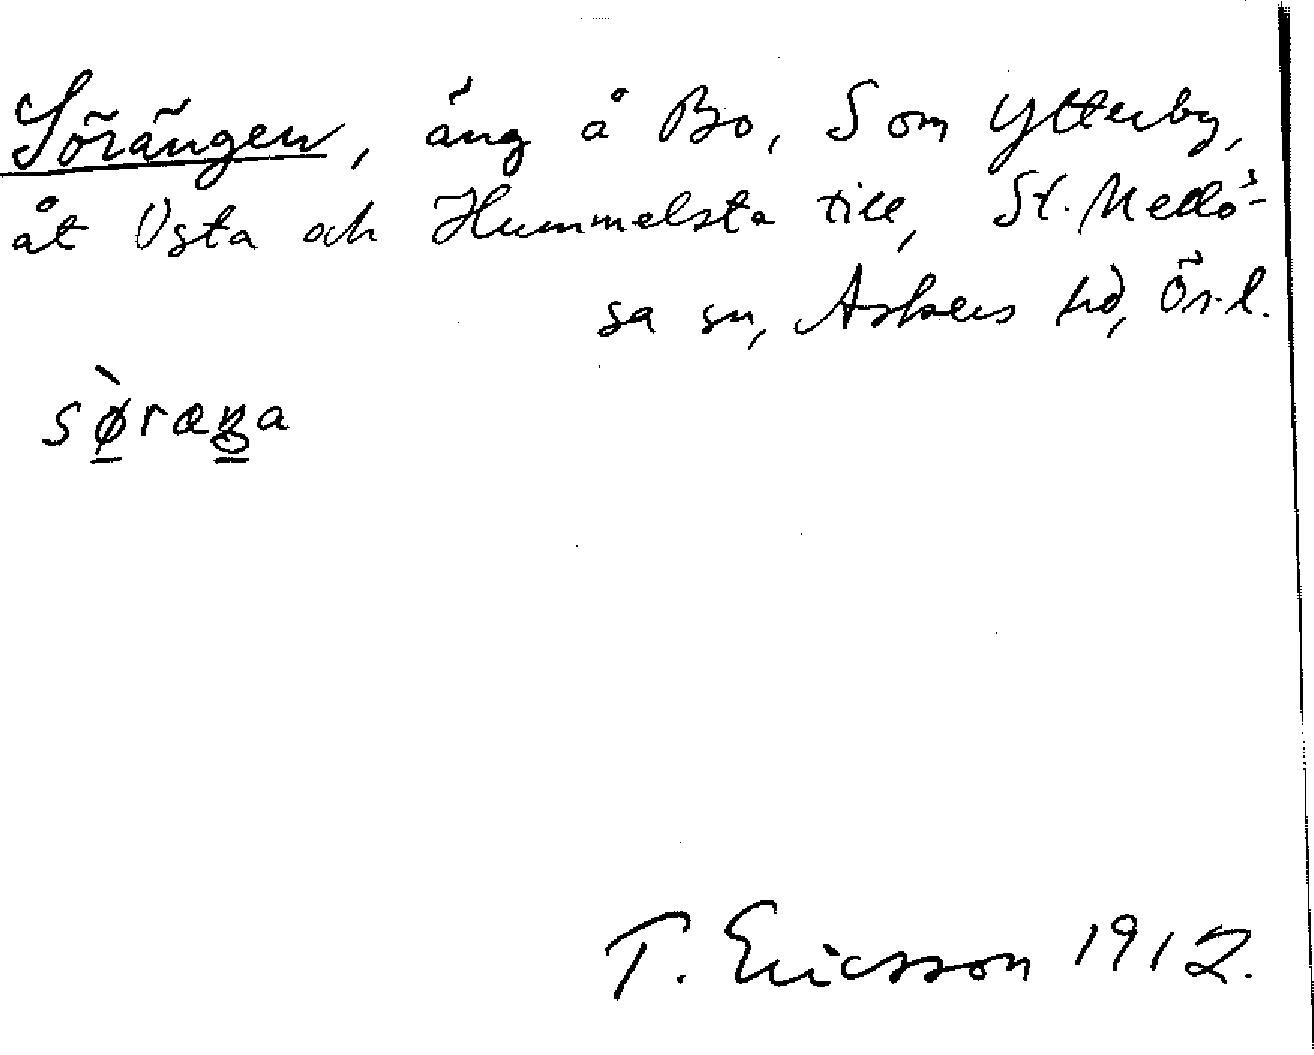 Sörängen, äng å Bo, S om Ytterby,
åt Usta och Hummelsta till, St. Mellö-
sa sn, Askers hd, Ör. l.
sø̀ræŋa
T. Ericsson 1912.